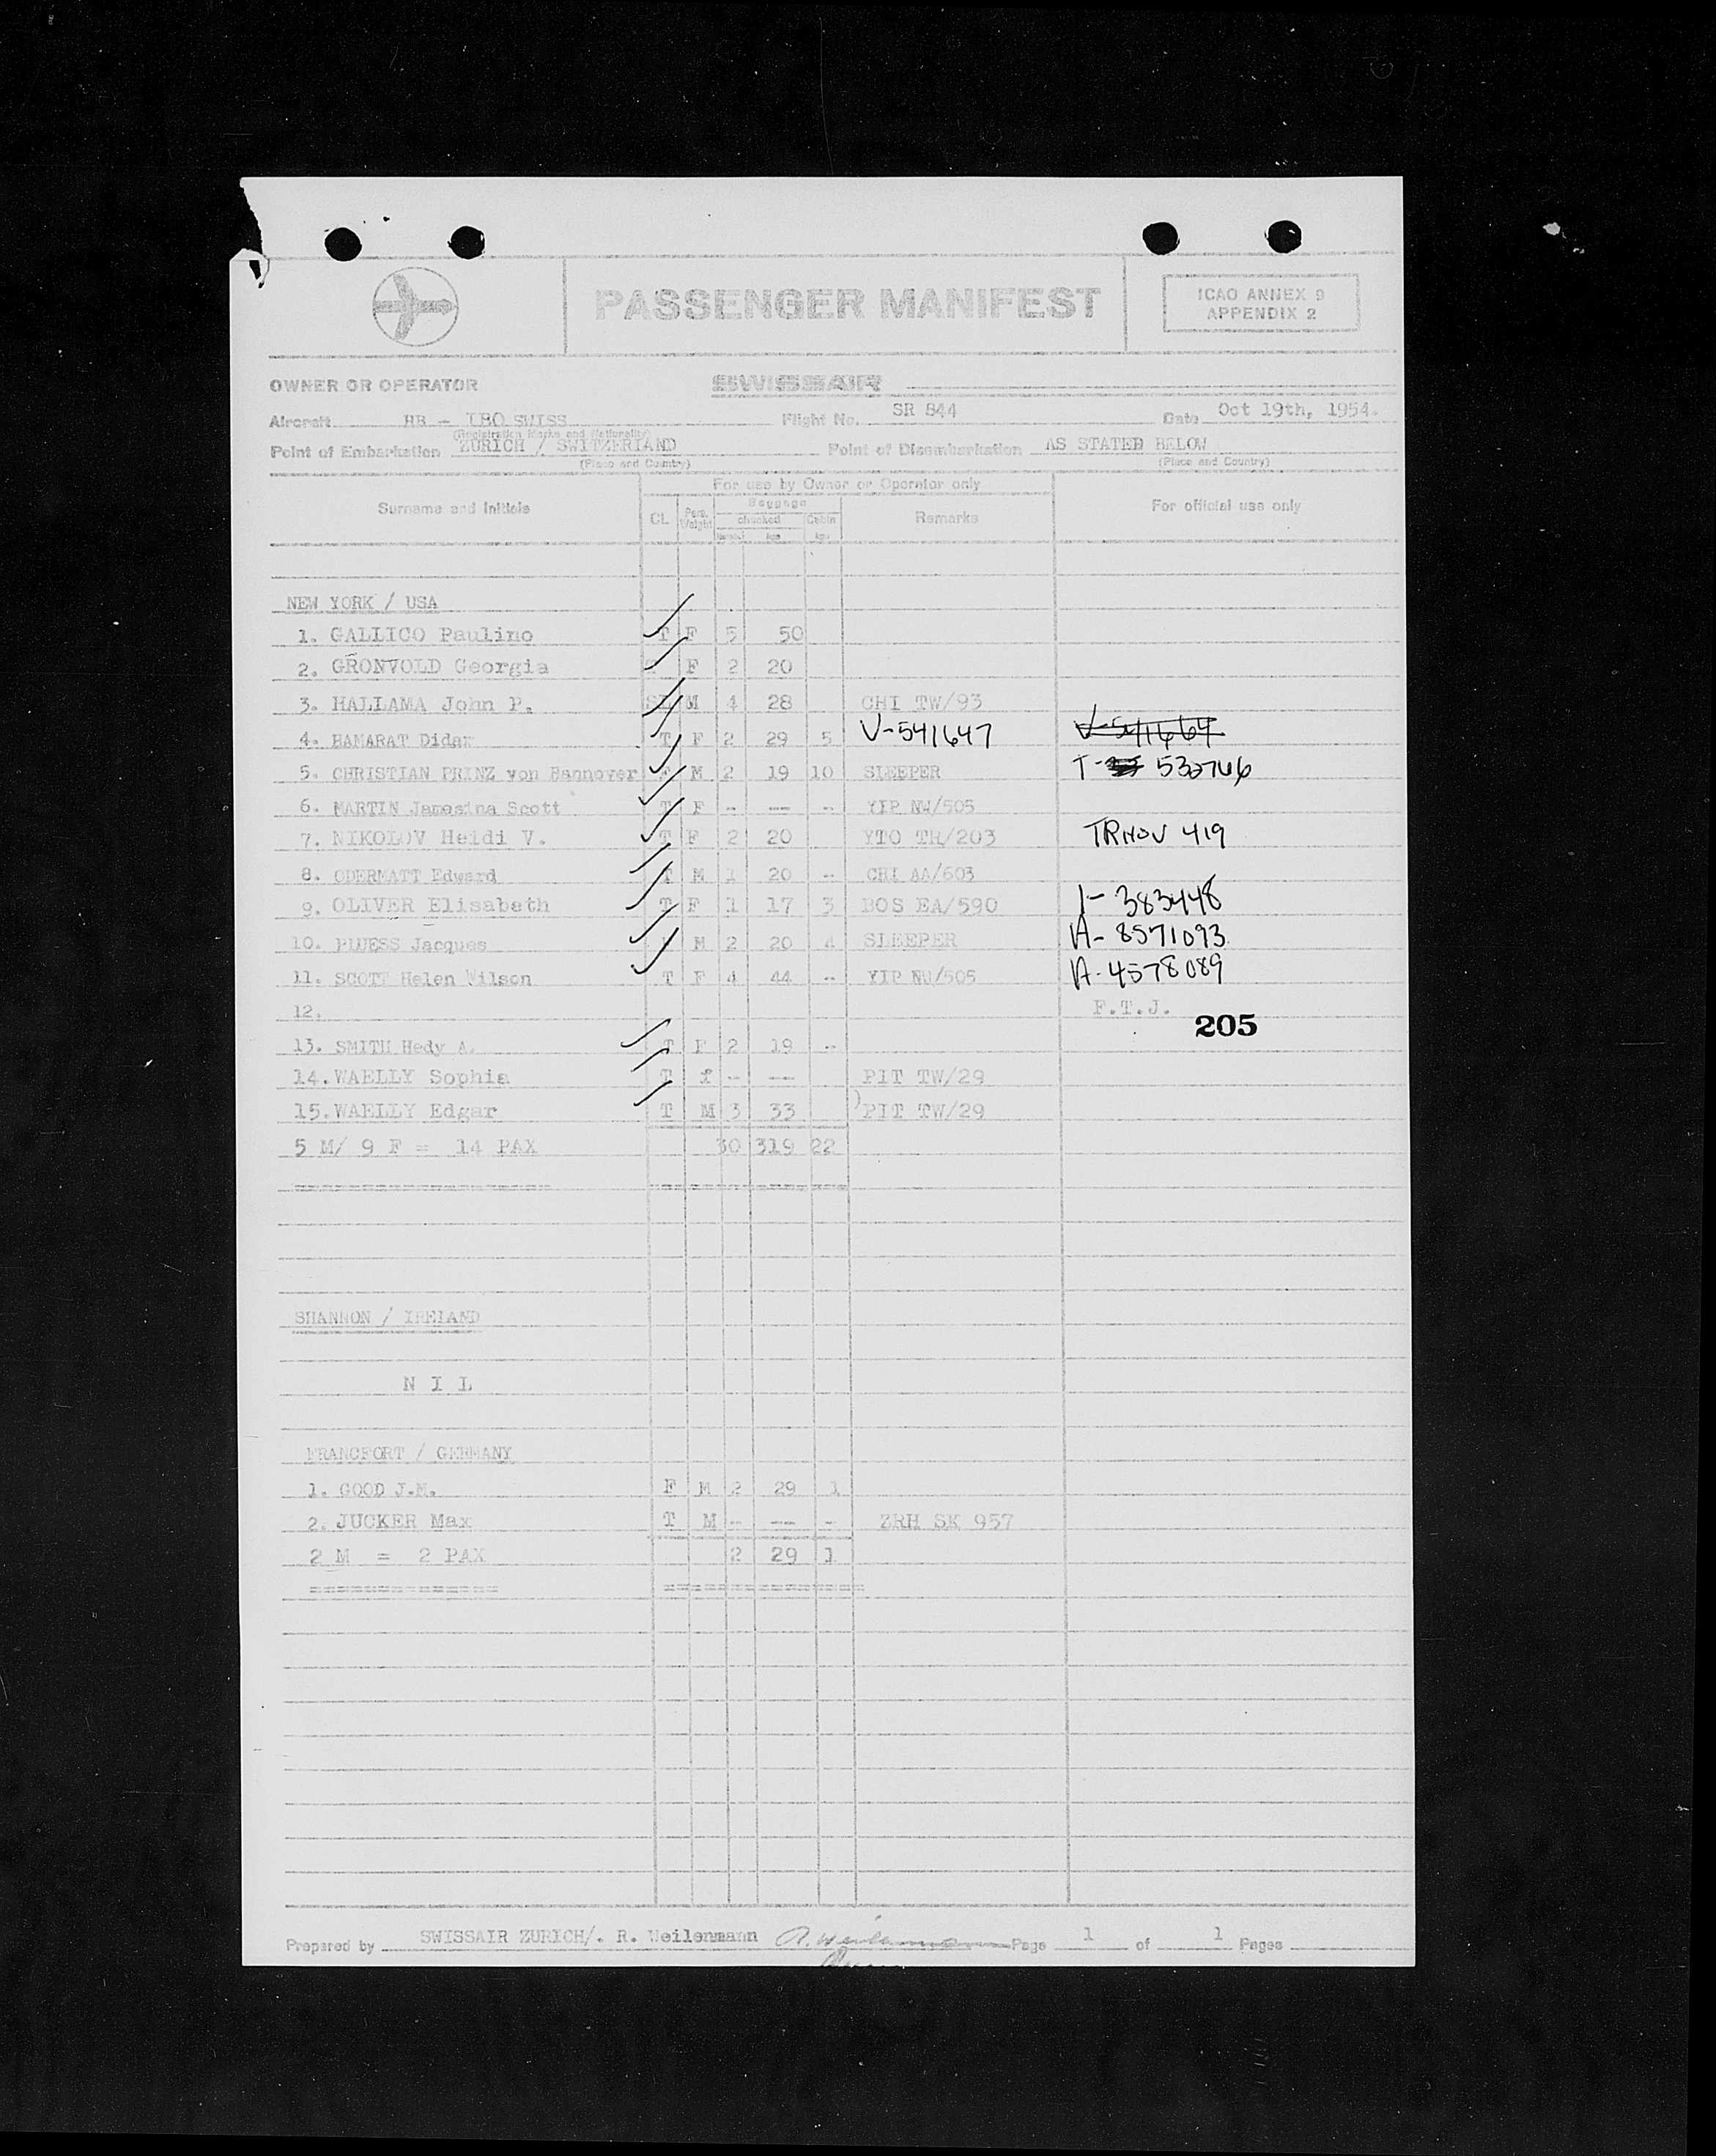 PASSENGER MANIFEST
ICAO ANNEX 9
APPENDIX 2
OWNER OR OPERATOR SWISSAIR
Aircraft HB - IBO SWISS Flight No. SR 844 Date Oct 19th, 1954.
(Registration Marks and Nationality)
Point of Embarkation ZURICH / SWITZERLAND Point of Disembarkation AS STATED BELOW
(Place and Country) (Place and Country)
For use by Owner or Operator only
Surname and Initials CL Pers. Weight Baggage checked Cabin Remarks For official use only
kgs kgs
NEW YORK / USA
1. GALLICO Paulino T F 5 50
2. GRONVOLD Georgia T F 2 20
3. HALLAMA John P. M 4 28 CHI TW/93
4. HAMARAT Didar T F 2 29 5 V-541647 V-541664
5. CHRISTIAN PRINZ von Hannover F M 2 19 10 SLEEPER T- 532746
6. MARTIN Jamesina Scott T F - -- - YIP NW/505
7. NIKOLOV Heidi V. T F 2 20 YTO TR/203 TRNOV 419
8. ODERMATT Edward T M 1 20 - CHI AA/603
9. OLIVER Elisabeth T F 1 17 3 BOS EA/590 I- 383448
10. PLUESS Jacques M 2 20 4 SLEEPER A- 8571093
11. SCOTT Helen Wilson T F 4 44 - YIP NW/505 A-4578089
12. F.T.J.
205
13. SMITH Hedy A. T F 2 19 -
14. WAELLY Sophia T f - -- PIT TW/29
15. WAELLY Edgar T M 3 33 )PIT TW/29
5 M/ 9 F = 14 PAX 30 319 22
SHANNON / IRELAND
N I L
FRANCFORT / GERMANY
1. GOOD J.M. F M 2 29 1
2. JUCKER Max T M - -- - ZRH SK 957
2 M = 2 PAX 2 29 1
Prepared by SWISSAIR ZURICH/. R. Weilenmann R. Weilenmann Page 1 of 1 Pages